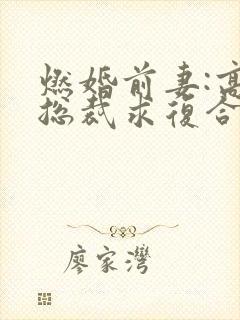 燃婚前妻:高
总裁求復合
廖家灣